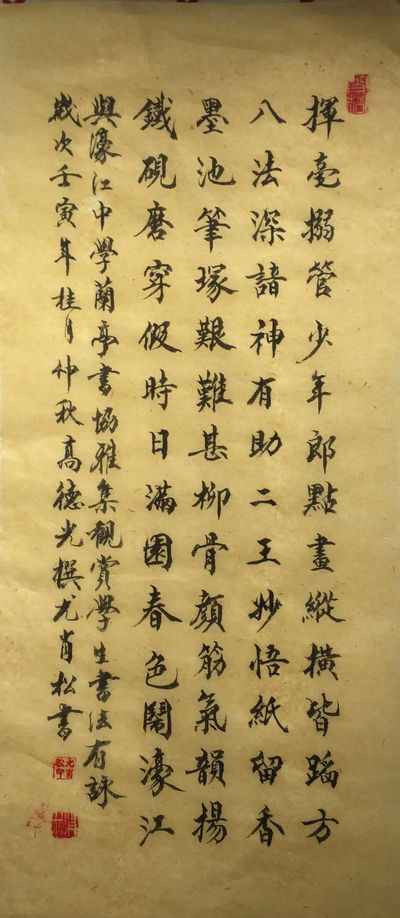 揮毫搦管少年郎點畫縱橫皆蹈方
八法深諳神有助二王妙悟紙留香
墨池筆塚艱難甚柳骨顏筋氣韻揚
鐵硯磨穿假時日滿園春色鬧濠江
與濠江中學蘭亭書協雅集觀賞學生書法有詠
歲次壬寅年桂月仲秋高德光撰尤肖松書